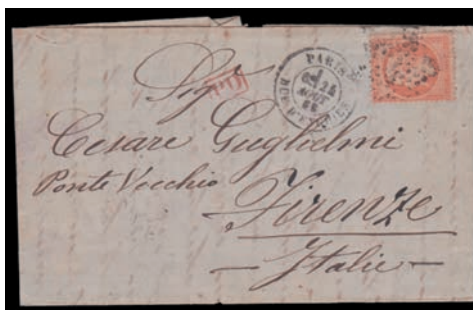 PARIS
24
AOUT
66
PD
Sigr
Cesare Guglielmi
Ponte Vecchio
Firenze
Italie